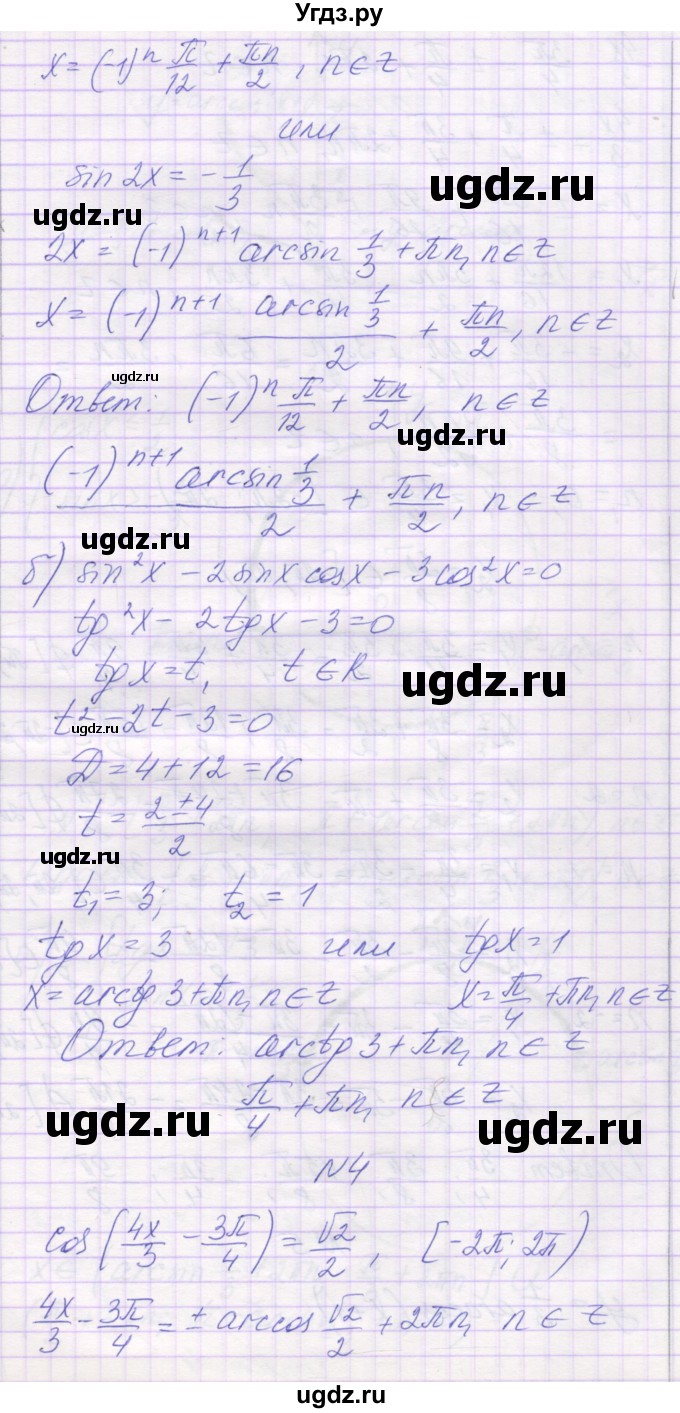 Угдз.ру
x = (-1)^n π/12 + πn/2, n ∈ Z
или
sin 2x = - 1/3
ugdz.ru
ugdz.ru
2x = (-1)^{n+1} arcsin 1/3 + πn, n ∈ Z
x = (-1)^{n+1} (arcsin 1/3)/2 + πn/2, n ∈ Z
ugdz.ru
Ответ: (-1)^n π/12 + πn/2, n ∈ Z
ugdz.ru
(-1)^{n+1} arcsin 1/3 / 2 + πn/2, n ∈ Z
ugdz.ru
б) sin²x - 2 sin x cos x - 3 cos²x = 0
tg²x - 2tgx - 3 = 0
tgx = t, t ∈ R
ugdz.ru
t² - 2t - 3 = 0
ugdz.ru
Д = 4 + 12 = 16
t = (2 ± 4)/2
ugdz.ru
t₁ = 3; t₂ = 1
tgx = 3 или tgx = 1
x = arctg 3 + πn, n ∈ Z x = π/4 + πn, n ∈ Z
Ответ: arctg 3 + πn, n ∈ Z
π/4 + πn, n ∈ Z
ugdz.ru
ugdz.ru
N4
cos(4x/3 - 3π/4) = √2/2, [-2π; 2π)
4x/3 - 3π/4 = ± arccos √2/2 + 2πn, n ∈ Z
ugdz.ru